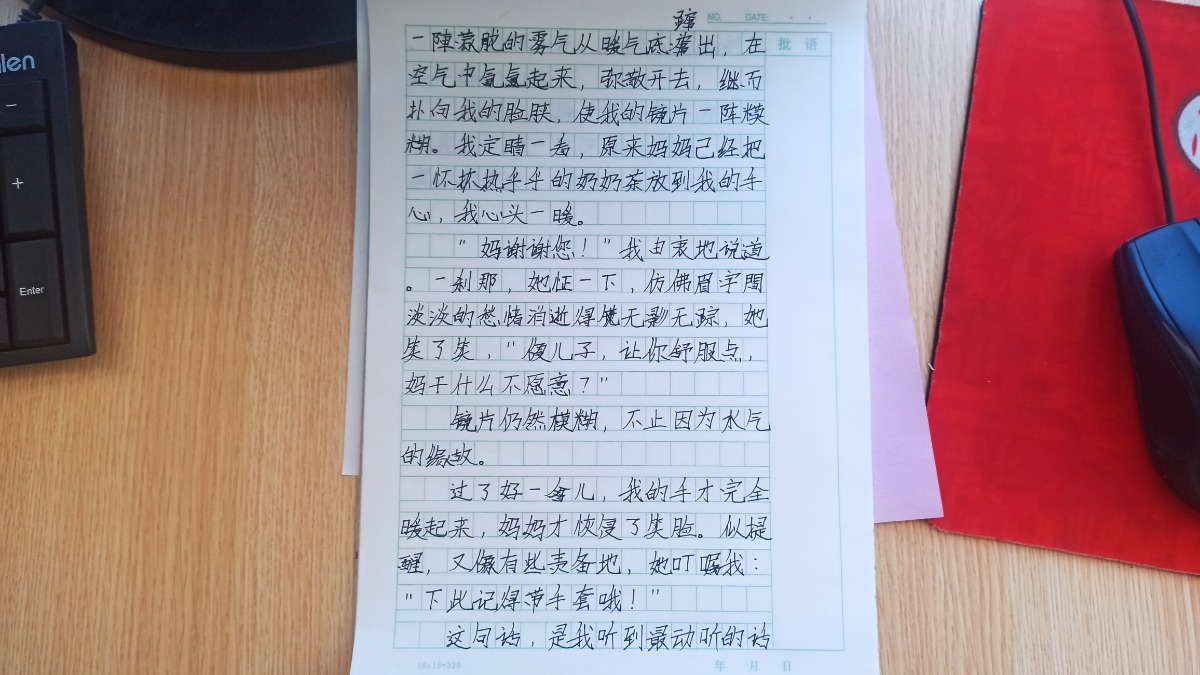 llen
−
+
Enter
NO. DATE: · ·
批语
一阵蒙胧的雾气从暖气底窜出，在
空气中氤氲起来，弥散开去，继而
扑向我的脸肤，使我的镜片一阵模
糊。我定睛一看，原来妈妈已经把
一杯热乎乎的奶奶茶放到我的手
心，我心头一暖。
“妈谢谢您！”我由衷地说道
。一刹那，她怔一下，仿佛眉宇間
淡淡的愁情消逝得无影无踪，她
笑了笑，“傻儿子，让你舒服点，
妈干什么不愿意？”
镜片仍然模糊，不止因为水气
的缘故。
过了好一会儿，我的手才完全
暖起来，妈妈才恢侵了笑脸。似提
醒，又像有些责备地，她叮嘱我：
“下此记得带手套哦！”
这句话，是我听到最动听的话
18x15=320
年 月 日